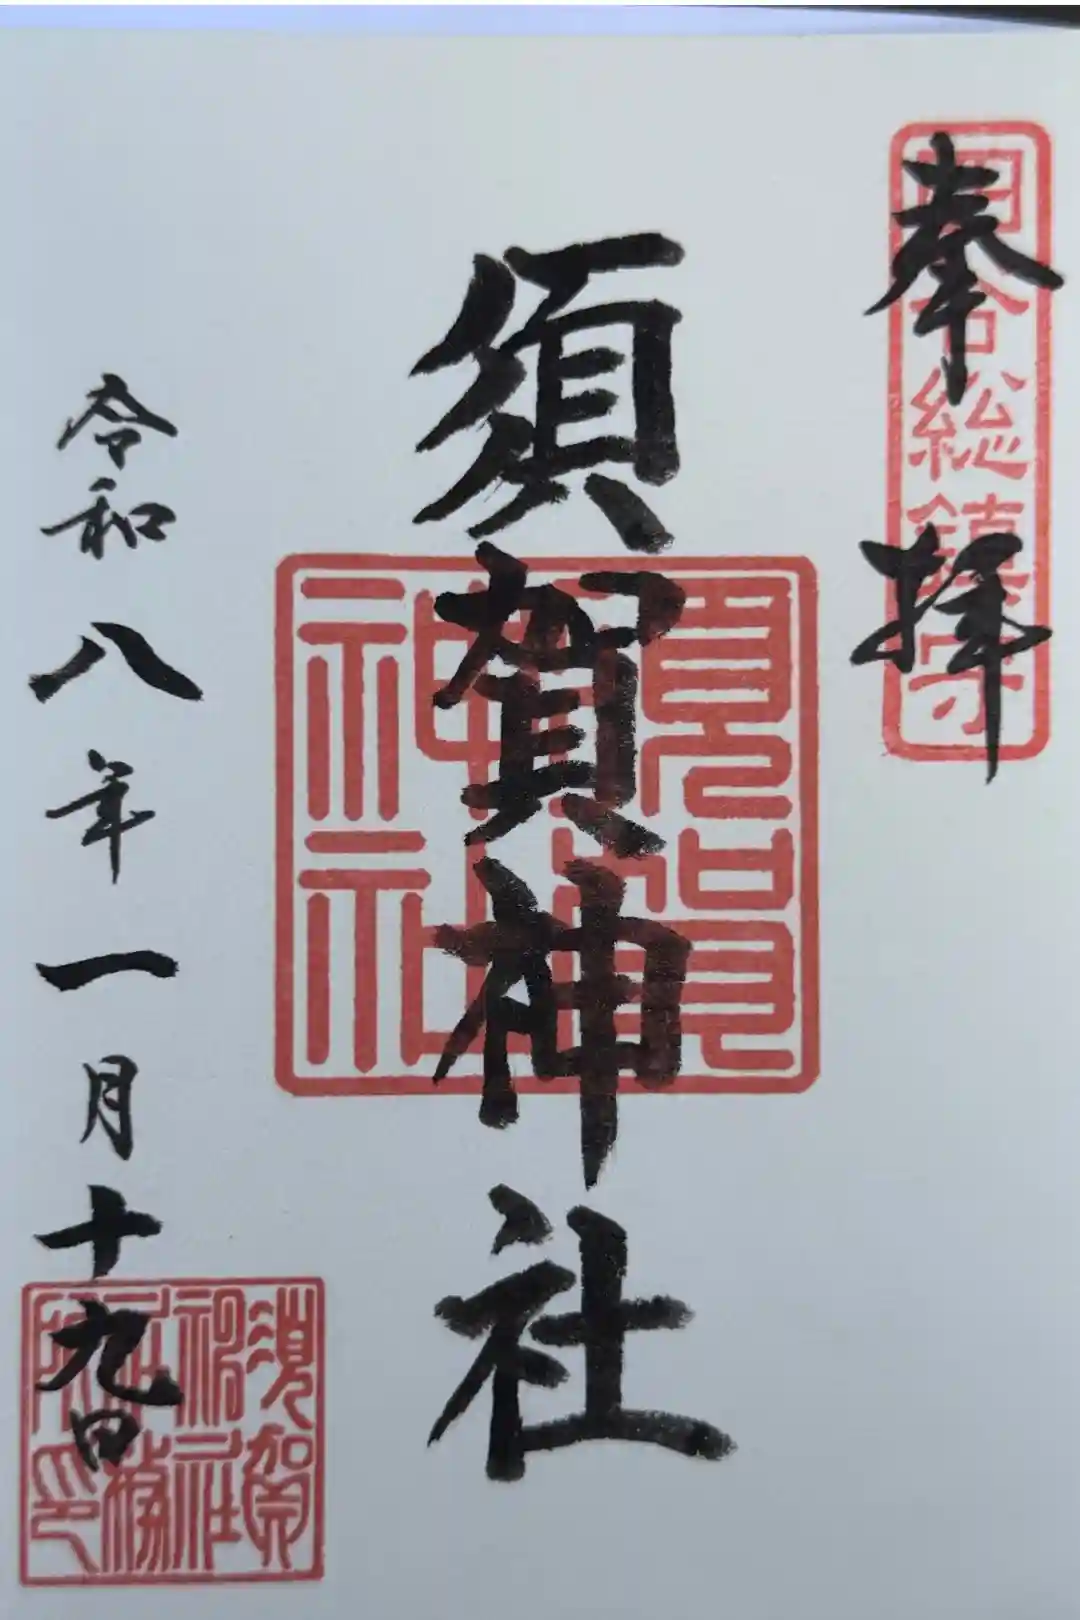 奉拝
四谷総鎮守
須賀神社
須賀神社
令和八年一月十九日
須賀神社